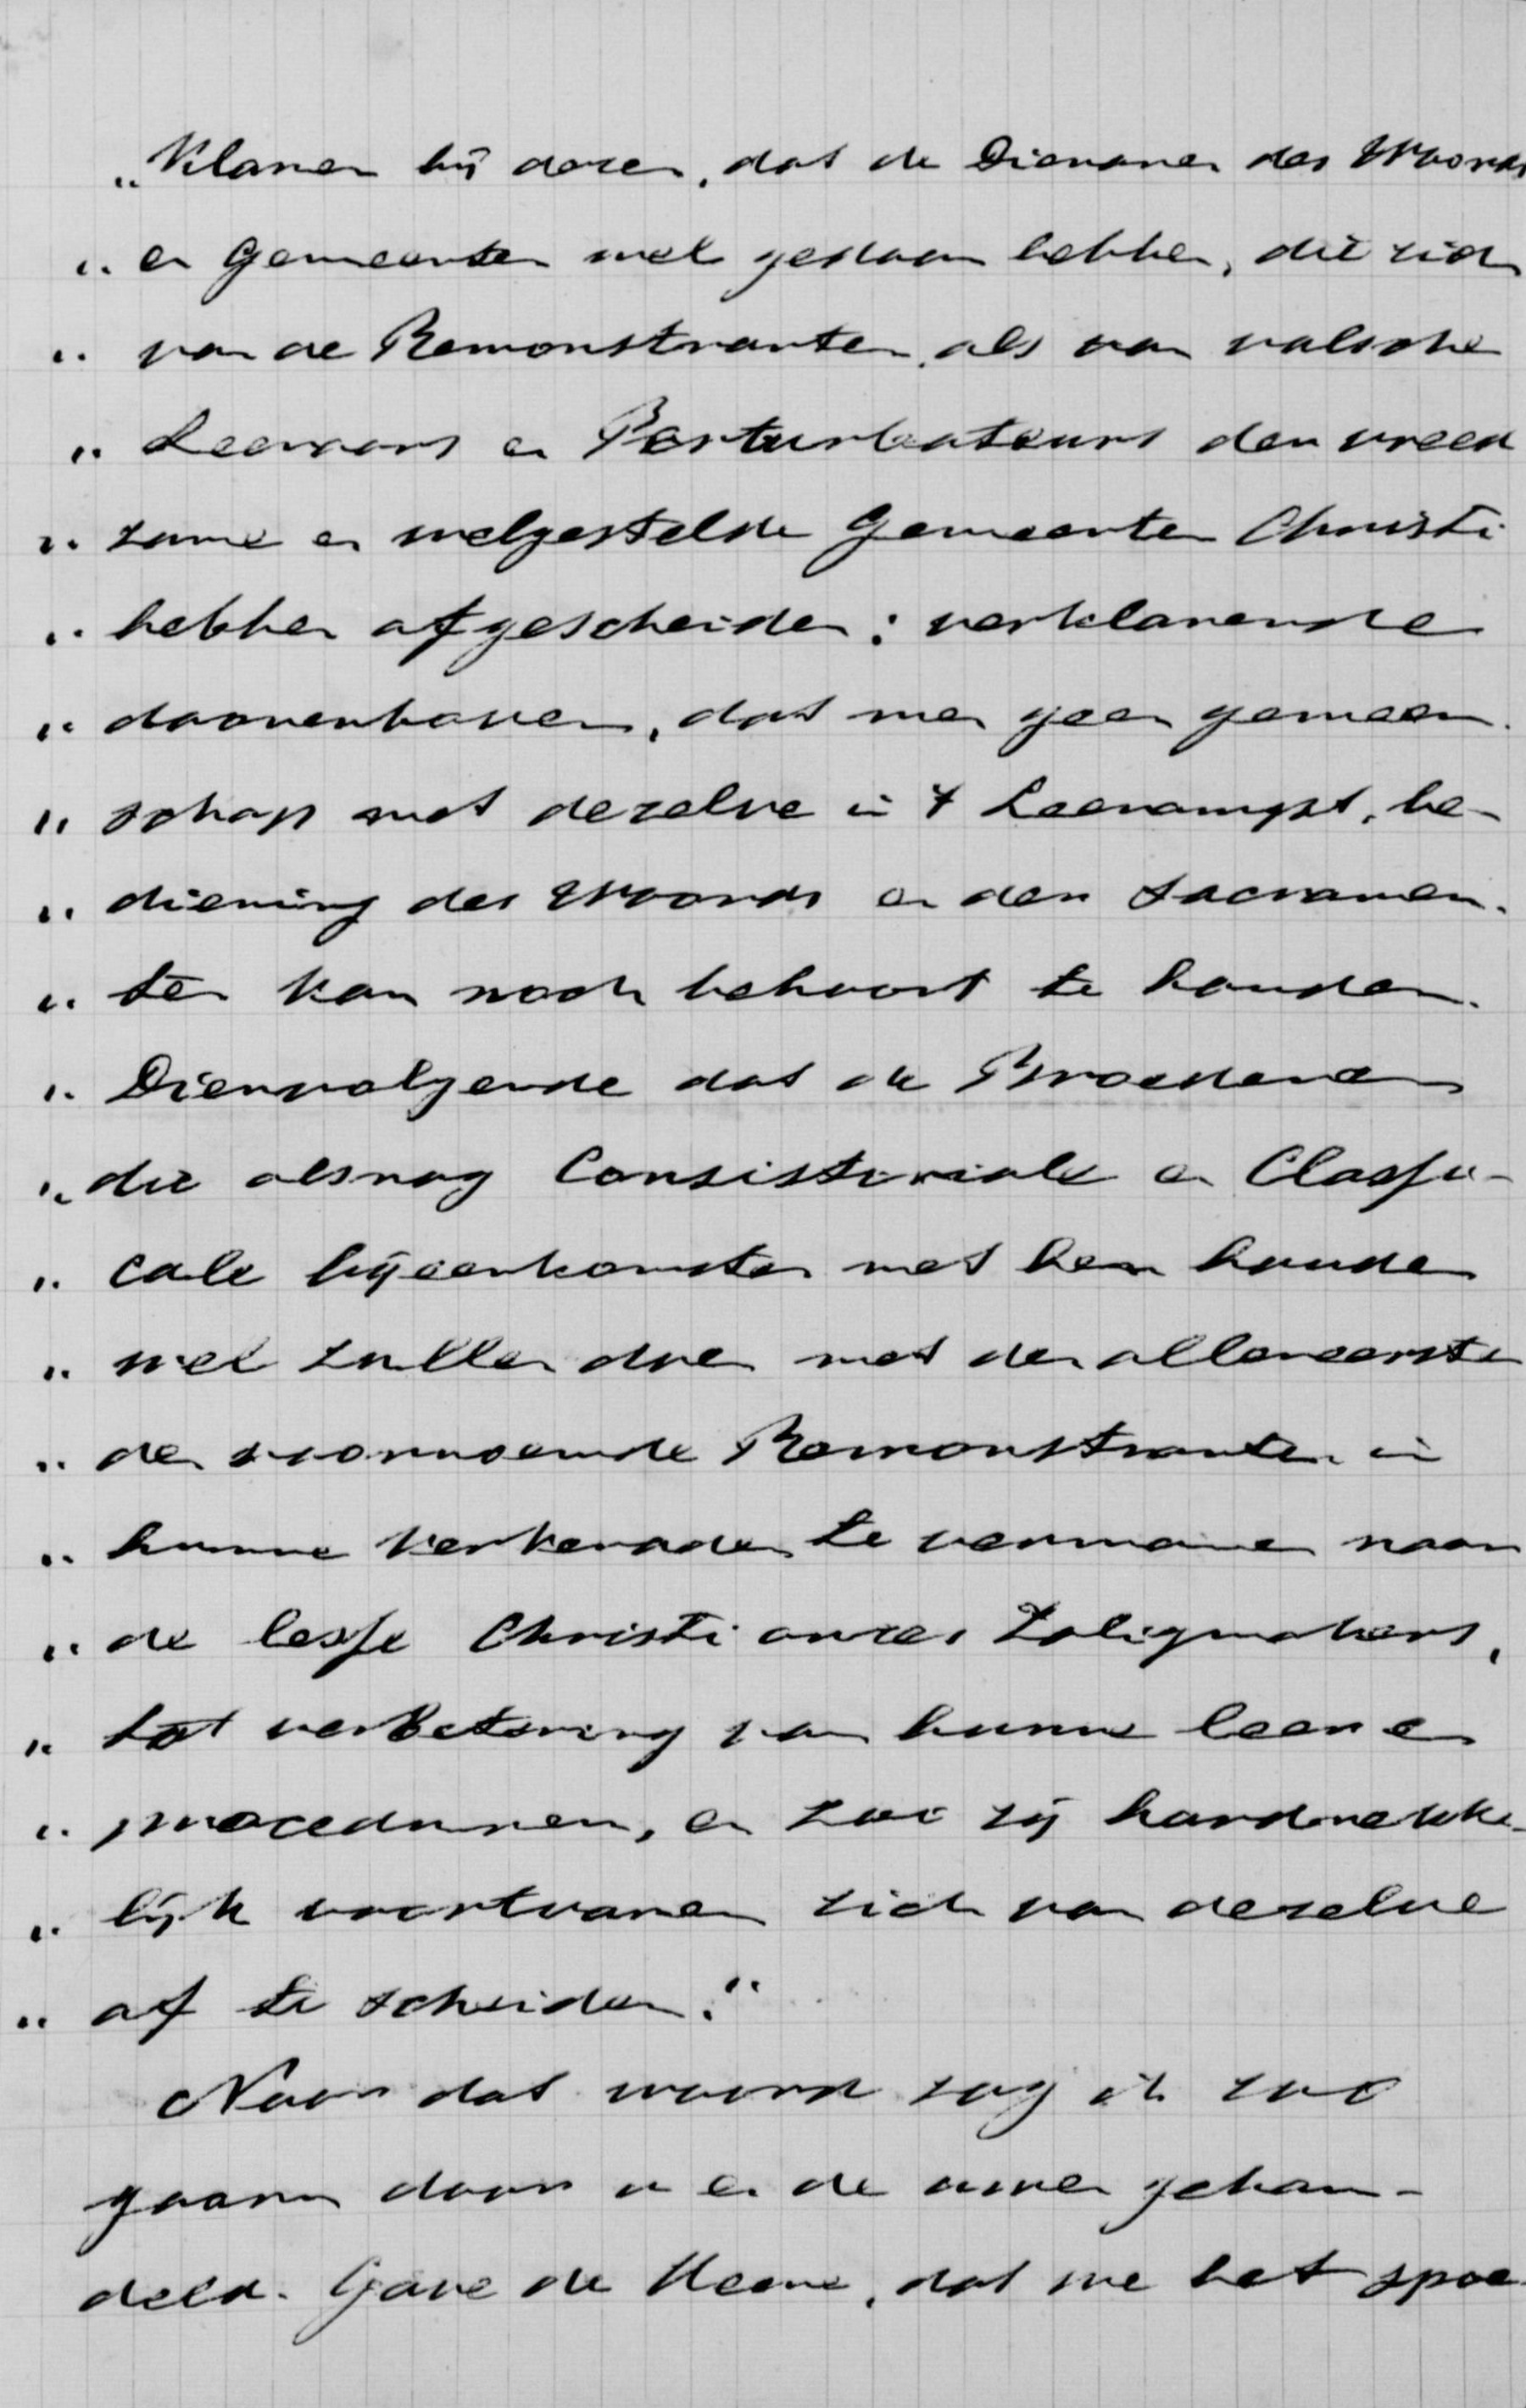 „Klaren bij dezen, dat de Dienaren des Woords
„ en Gemeenten wel gedaan hebben, die zich
„ van de Remonstranten, als van valsche
„ Leeraars en Perturbateurs der vreed
„ zame en welgestelde Gemeenten Christi
„ hebben afgescheiden: verklarende
„ daarenboven, dat men geen gemeen-
„ schap met dezelve in 't Leerampt, be-
„ diening des Woords en der Sacramen-
„ ten kan noch behoort te houden.
„ Dienvolgende dat de Broederen
„ die alsnog Consistoriale en Classi-
„ cale bijeenkomsten met hen houden
„ wel zullen doen met den allereerste
„ de voornoemde Remonstranten in
„ hunne kerkeraden te vermanen naar
„ de lesse Christi onzes Zaligmakers,
„ tot verbetering van hunne leer en
„ proceduren, en zoo zij hardnekke-
„ lijk voortvaren zich van dezelve
„ af te scheiden."
Naar dat woord zag ik zoo
gaarn door u en de uwen gehan-
deld. Gave de Heere, dat we het spoe-